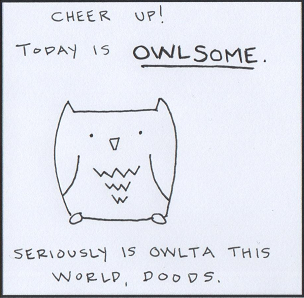 CHEER UP!
TODAY IS OWLSOME.
SERIOUSLY IS OWLTA THIS
WORLD, DOODS.